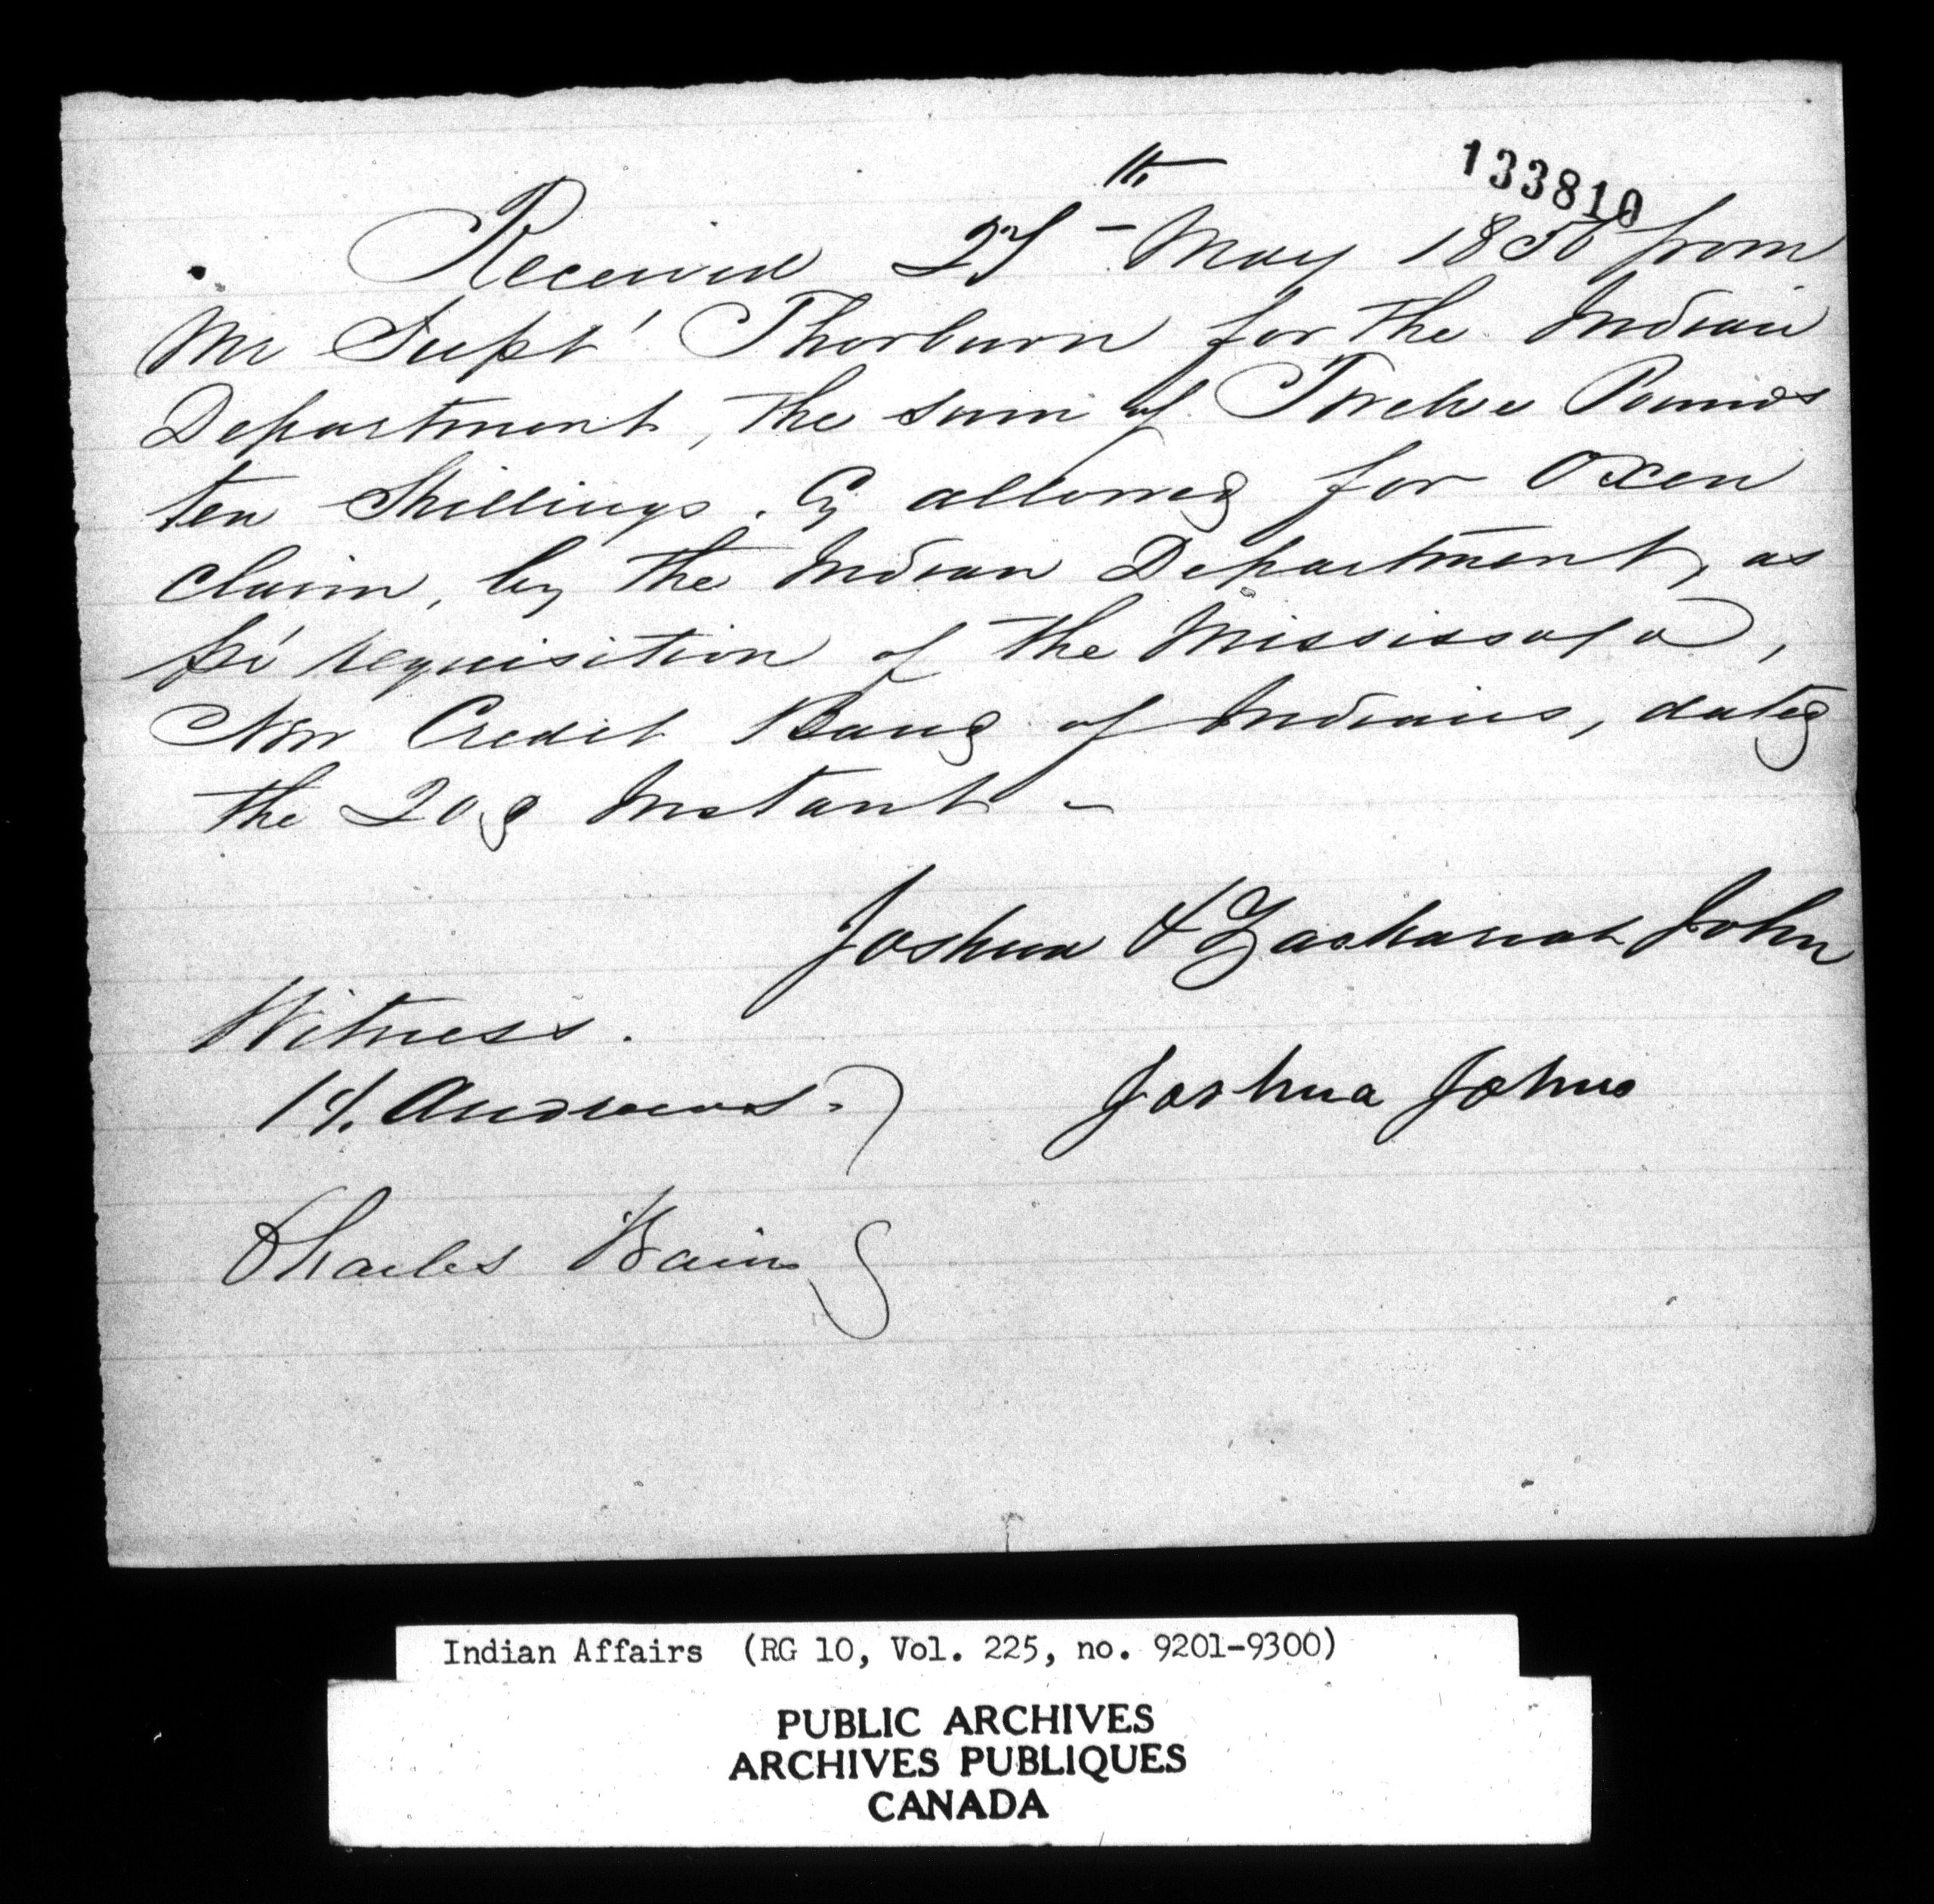 133810
Received 27th May 1856 from
Mr Supt Thorburn for the Indian
Department, the sum of Twelve Pounds
ten Shillings. Cy allowed for Oxen
claim, by the Indian Department, as
pr requisition of the Mississaga,
New Credit Band of Indians, dated
the 20d Instant -
Joshua & Zachariah John
Witness.
H. Andrews.
Joshua Johns
Charles
Indian Affairs (RG 10, Vol. 225, no. 9201-9300)
PUBLIC ARCHIVES
ARCHIVES PUBLIQUES
CANADA